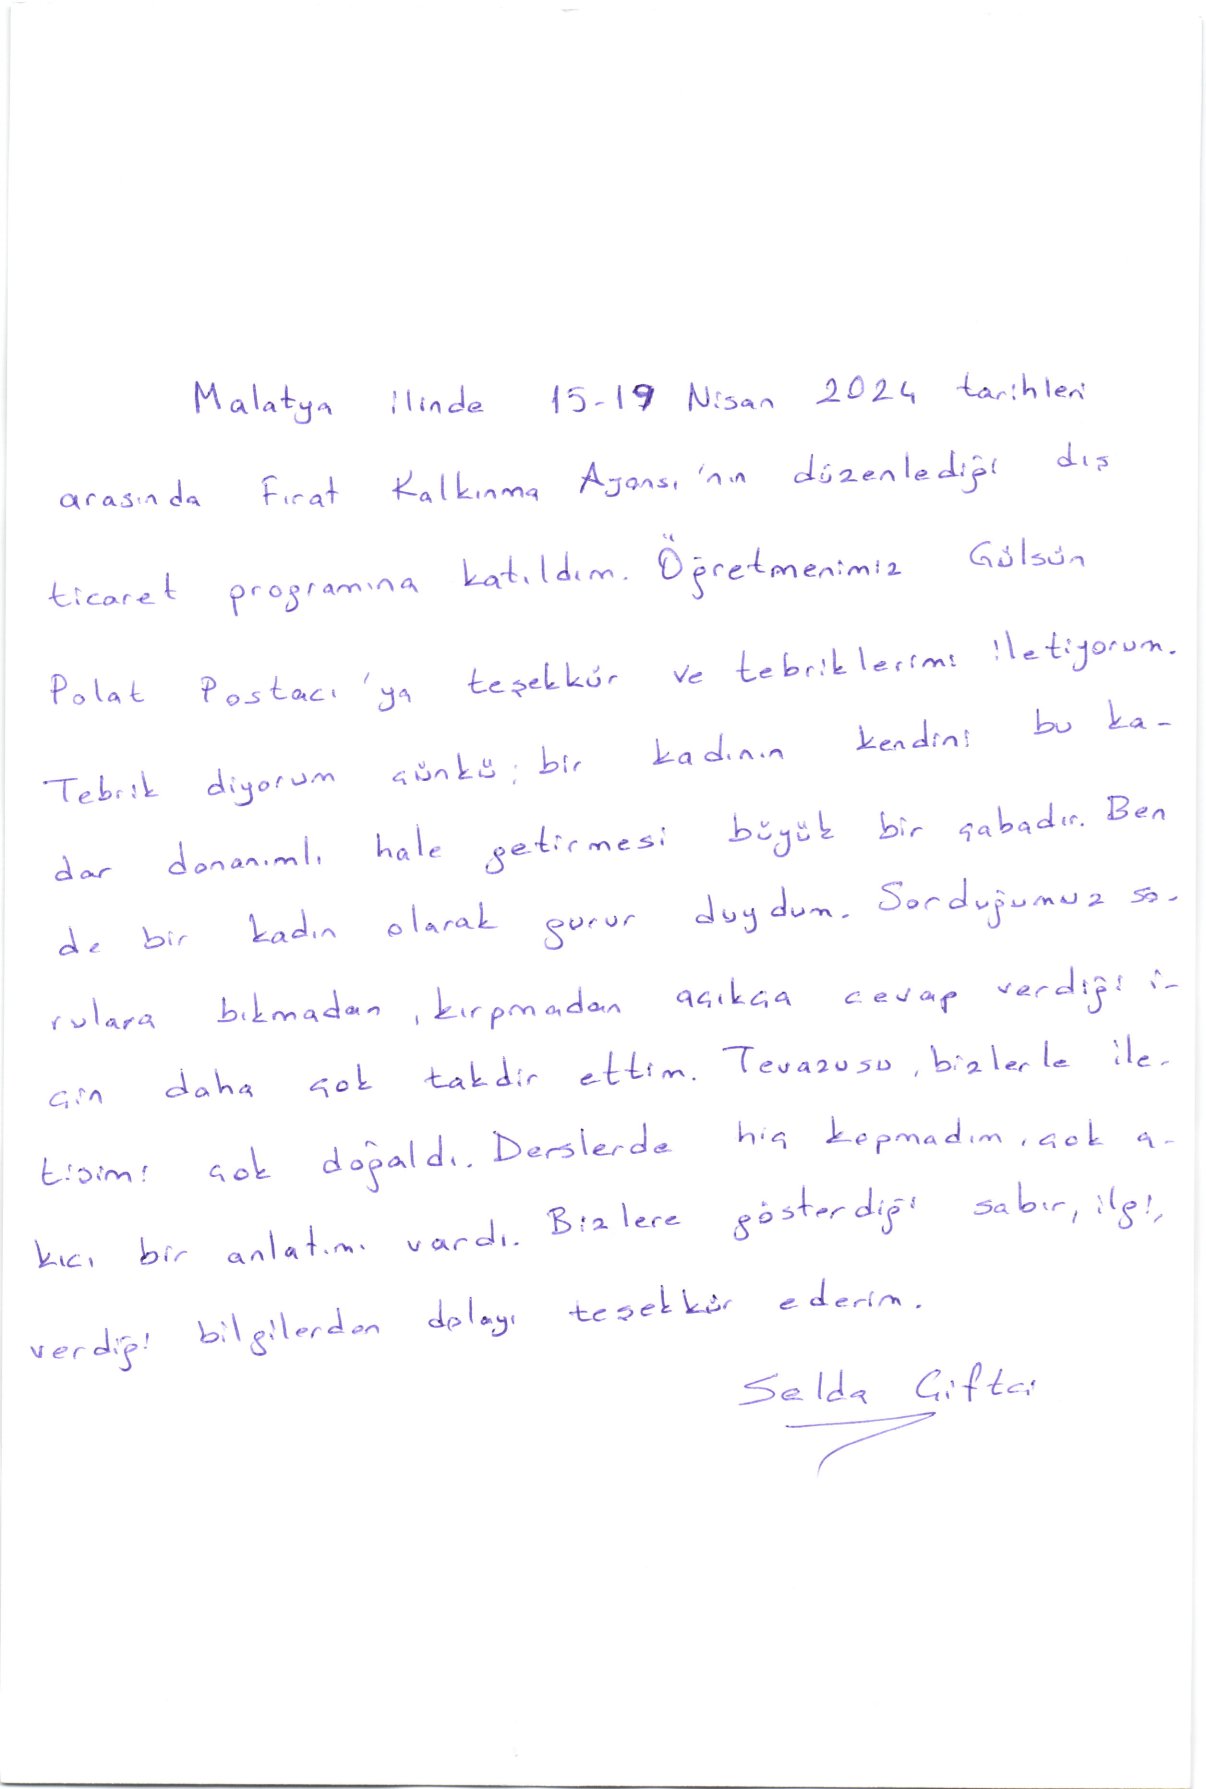 Malatya ilinde 15-19 Nisan 2024 tarihleri
arasında Fırat Kalkınma Ajansı'nın düzenlediği dış
ticaret programına katıldım. Öğretmenimiz Gülsün
Polat Postacı'ya teşekkür ve tebriklerimi iletiyorum.
Tebrik diyorum çünkü; bir kadının kendini bu ka-
dar donanımlı hale getirmesi büyük bir çabadır. Ben
de bir kadın olarak gurur duydum. Sorduğumuz so-
rulara bıkmadan, kırpmadan açıkça cevap verdiği i-
çin daha çok takdir ettim. Tevazusu, bizlerle ile-
tişimi çok doğaldı. Derslerde hiç kopmadım, çok a-
kıcı bir anlatımı vardı. Bizlere gösterdiği sabır, ilgi,
verdiği bilgilerden dolayı teşekkür ederim.
Selda Çiftçi